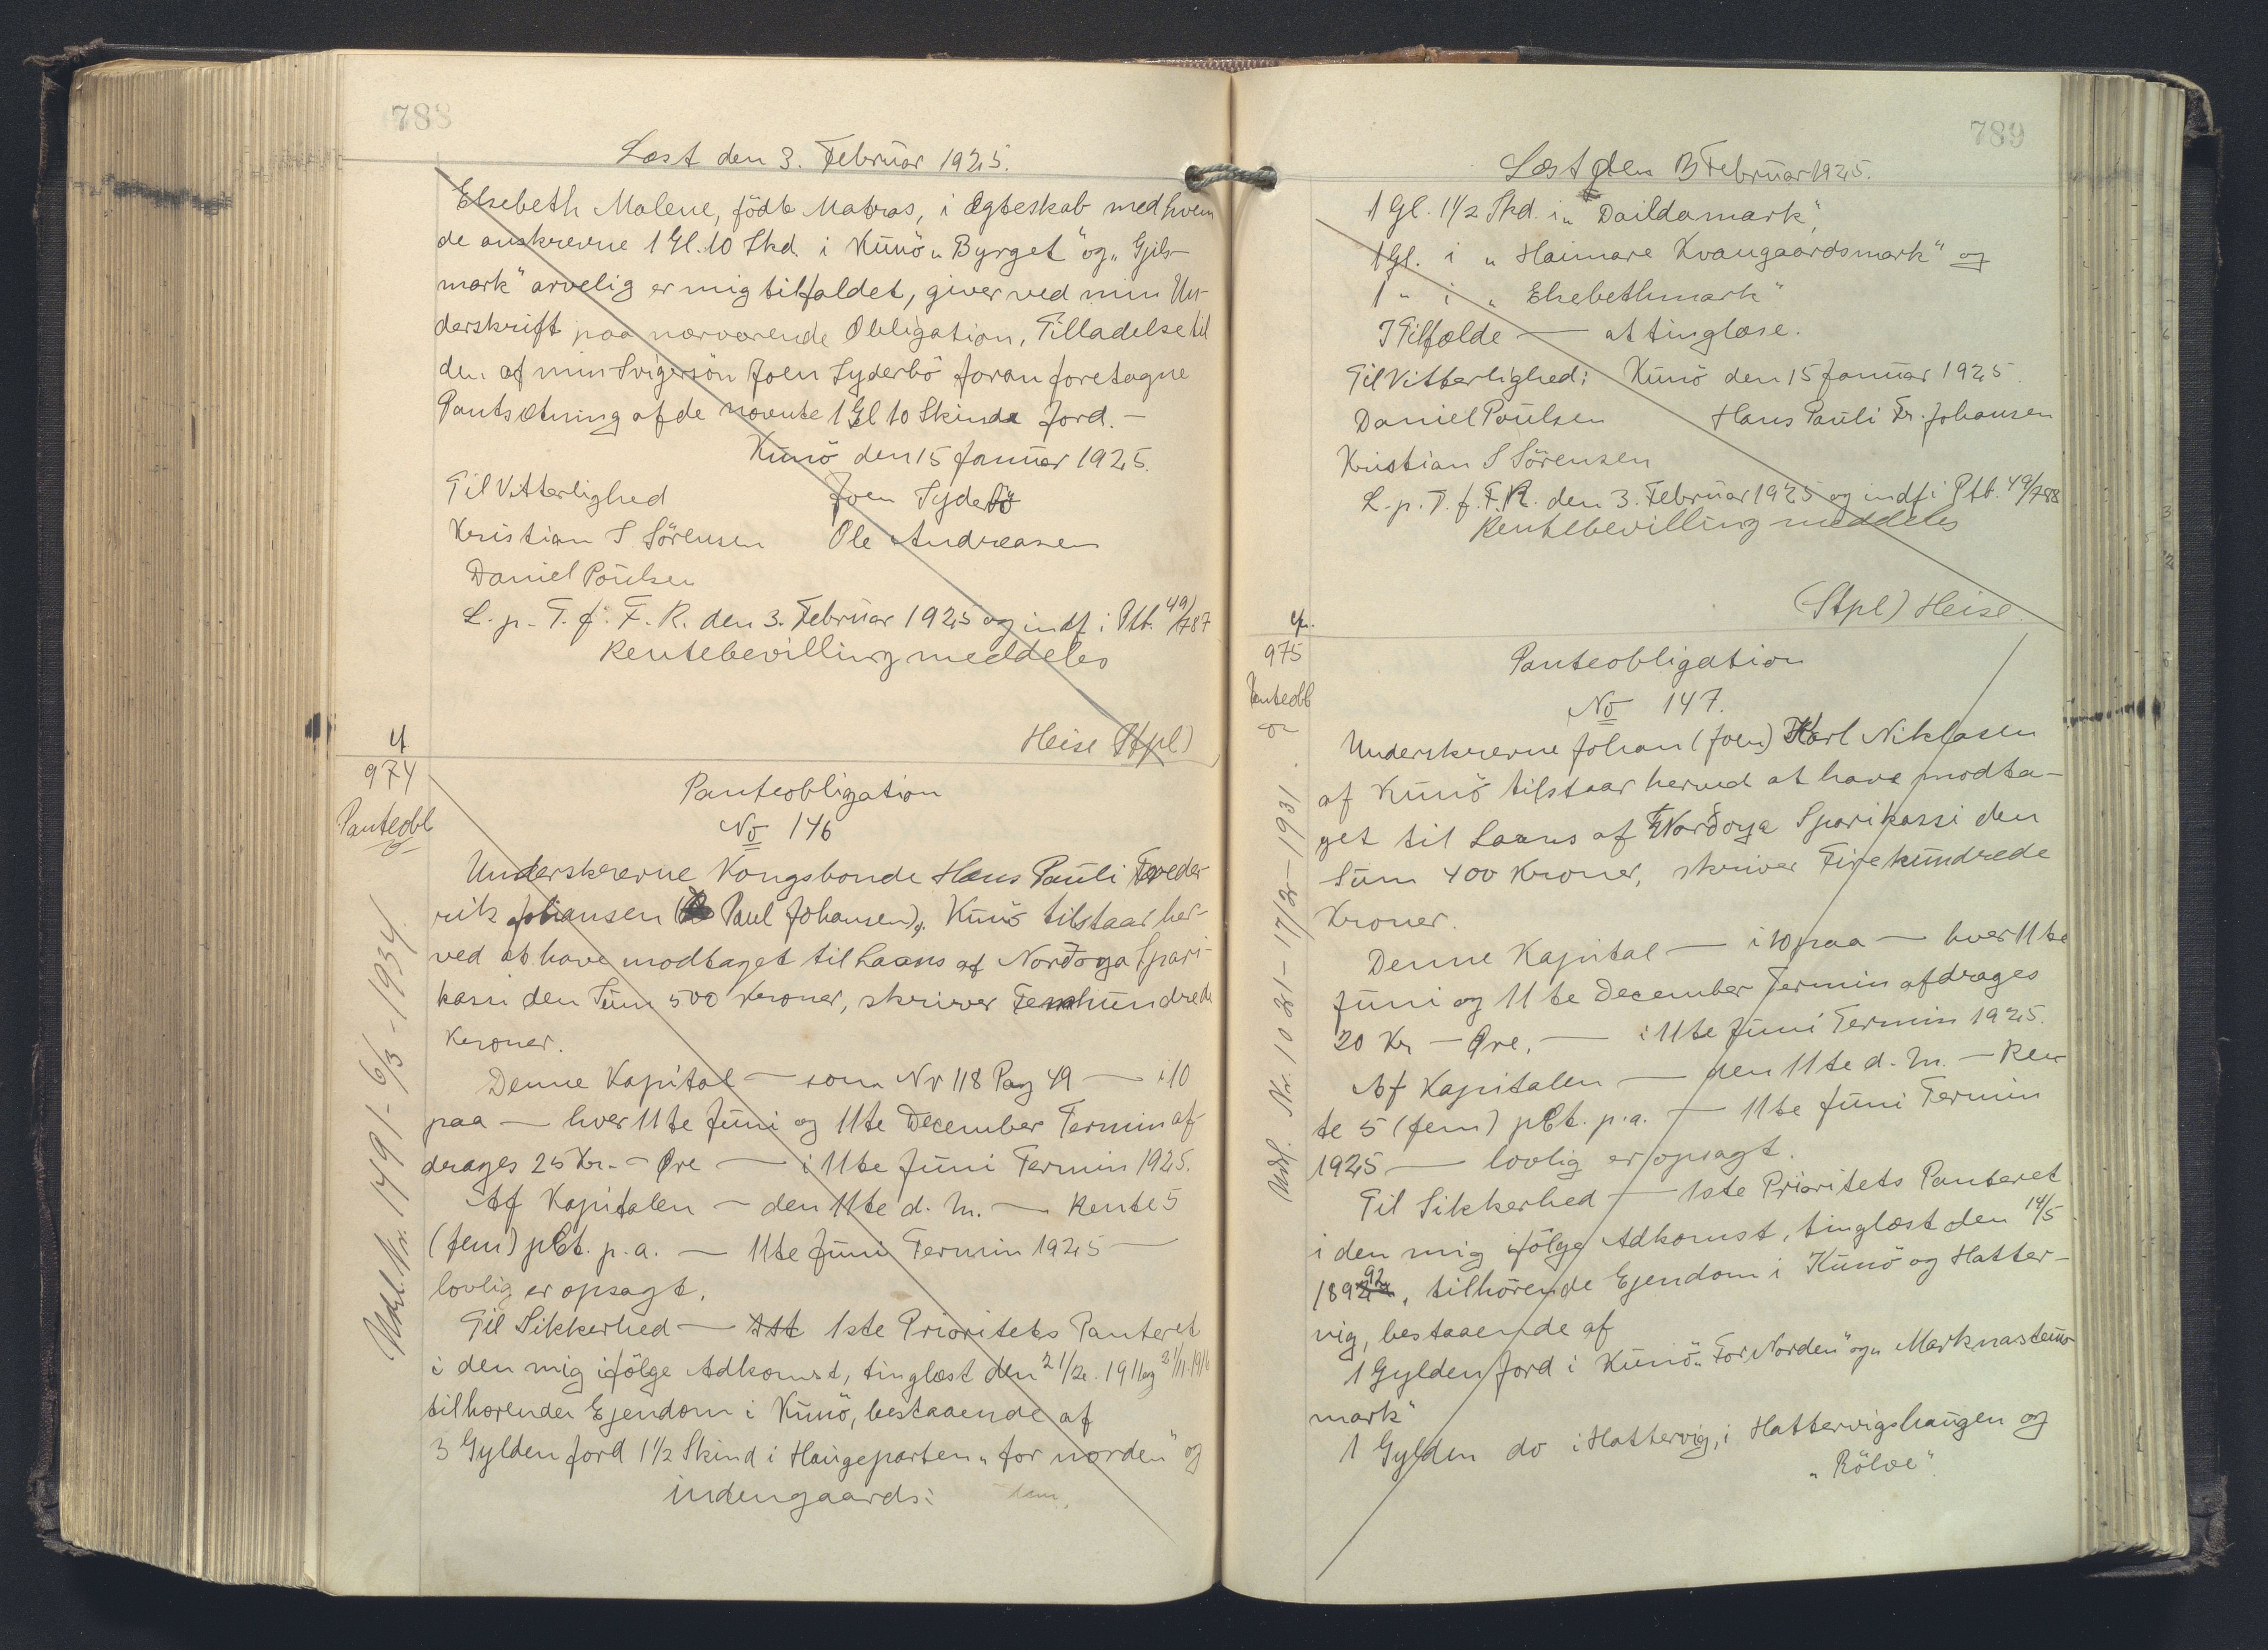 788
Læst den 3. Februar 1925.
Elsebeth Malene, födt Matras, i Ægteskab med hvem
de anskrevne 1 Gl. 10 Skd. i Kunö „Byrget" og „Gjils-
mark" arvelig er mig tilfaldet, giver ved min Un-
derskrift paa nærværende Obligation, Tilladelse til
den af min Svigersön Joen Syderbö foran foretagne
Pantsætning af de nævnte 1 Gl 10 Skinds Jord. —
Kunö den 15 Januar 1925.
Til Vitterlighed Joen Syderbö
Kristian S Sörensen Ole Andreasen
Daniel Poulsen
L. p. T. f. F. R. den 3. Februar 1925 og indf i Ptb. 49/787
Rentebevilling meddeles
Heise (Stpl)
4
974
Panteobl
Udsl. Nr. 1491 - 6/3 - 1934
Panteobligation
No 146
Underskrevne Kongsbonde Hans Pauli Freder-
rik Johansen ( Paul Johansen), Kunö tilstaar her-
ved at have modtaget til Laans af Norðoya Spari-
kassi den Sum 500 Kroner, skriver Femhundrede
Kroner.
Denne Kapital — som Nr 118 Pag 49 — i 10
paa — hver 11te Juni og 11te December Termin af-
drages 25 Kr. - Øre — i 11te Juni Termin 1925.
Af Kapitalen — den 11te d. M. — Rente 5
(fem) pCt. p. a. — 11te Juni Termin 1925 —
lovlig er opsagt.
Til Sikkerhed — 1ste Prioritets Panteret
i den mig ifölge Adkomst, tinglæst den 21/2. 1911 og 21/11-1916
tilhørende Ejendom i Kunö, bestaaende af
3 Gylden Jord 1½ Skind i Haugeparten „for norden" og
indengaards:
789
Læst den 3 Februar 1925.
1 Gl. 1½ Skd. i „Daildamark",
1 Gl. i „Haimare Kvangaardsmark" og
1 " i „Elsebethmark"
I Tilfælde — at tinglæse.
Til Vitterlighed: Kunö den 15 Januar 1925.
Daniel Poulsen Hans Pauli Fr. Johansen
Kristian S Sörensen
L. p. T. f. F. R. den 3. Februar 1925 og indf i Ptb. 49/788
Rentebevilling meddeles
(Stpl) Heise
4.
975
Panteobl
Udsl. Nr. 1021 - 17/2 - 1931.
Panteobligation
No 147.
Underskrevne Johan (Joen) Karl Niklasen
af Kunö tilstaar herved at have modta-
get til Laans af Norðoya Sparikassi den
Sum 400 Kroner, skriver Firehundrede
Kroner.
Denne Kapital — i 10 paa — hver 11te
Juni og 11te December Termin afdrages
20 Kr — Øre. — i 11te Juni Termin 1925.
Af Kapitalen — den 11te d. M. — Ren-
te 5 (fem) pCt. p. a. — 11te Juni Termin
1925 — lovlig er opsagt.
Til Sikkerhed — 1ste Prioritets Panteret
i den mig ifölge Adkomst, tinglæst den 14/5
1892, tilhörende Ejendom i Kunö og Hatter-
vig, bestaaende af
1 Gylden Jord i Kunö „For Norden" og „Marknasteins-
mark"
1 Gylden do i Hattervig, i Hattervigshaugen og
„Rölve".